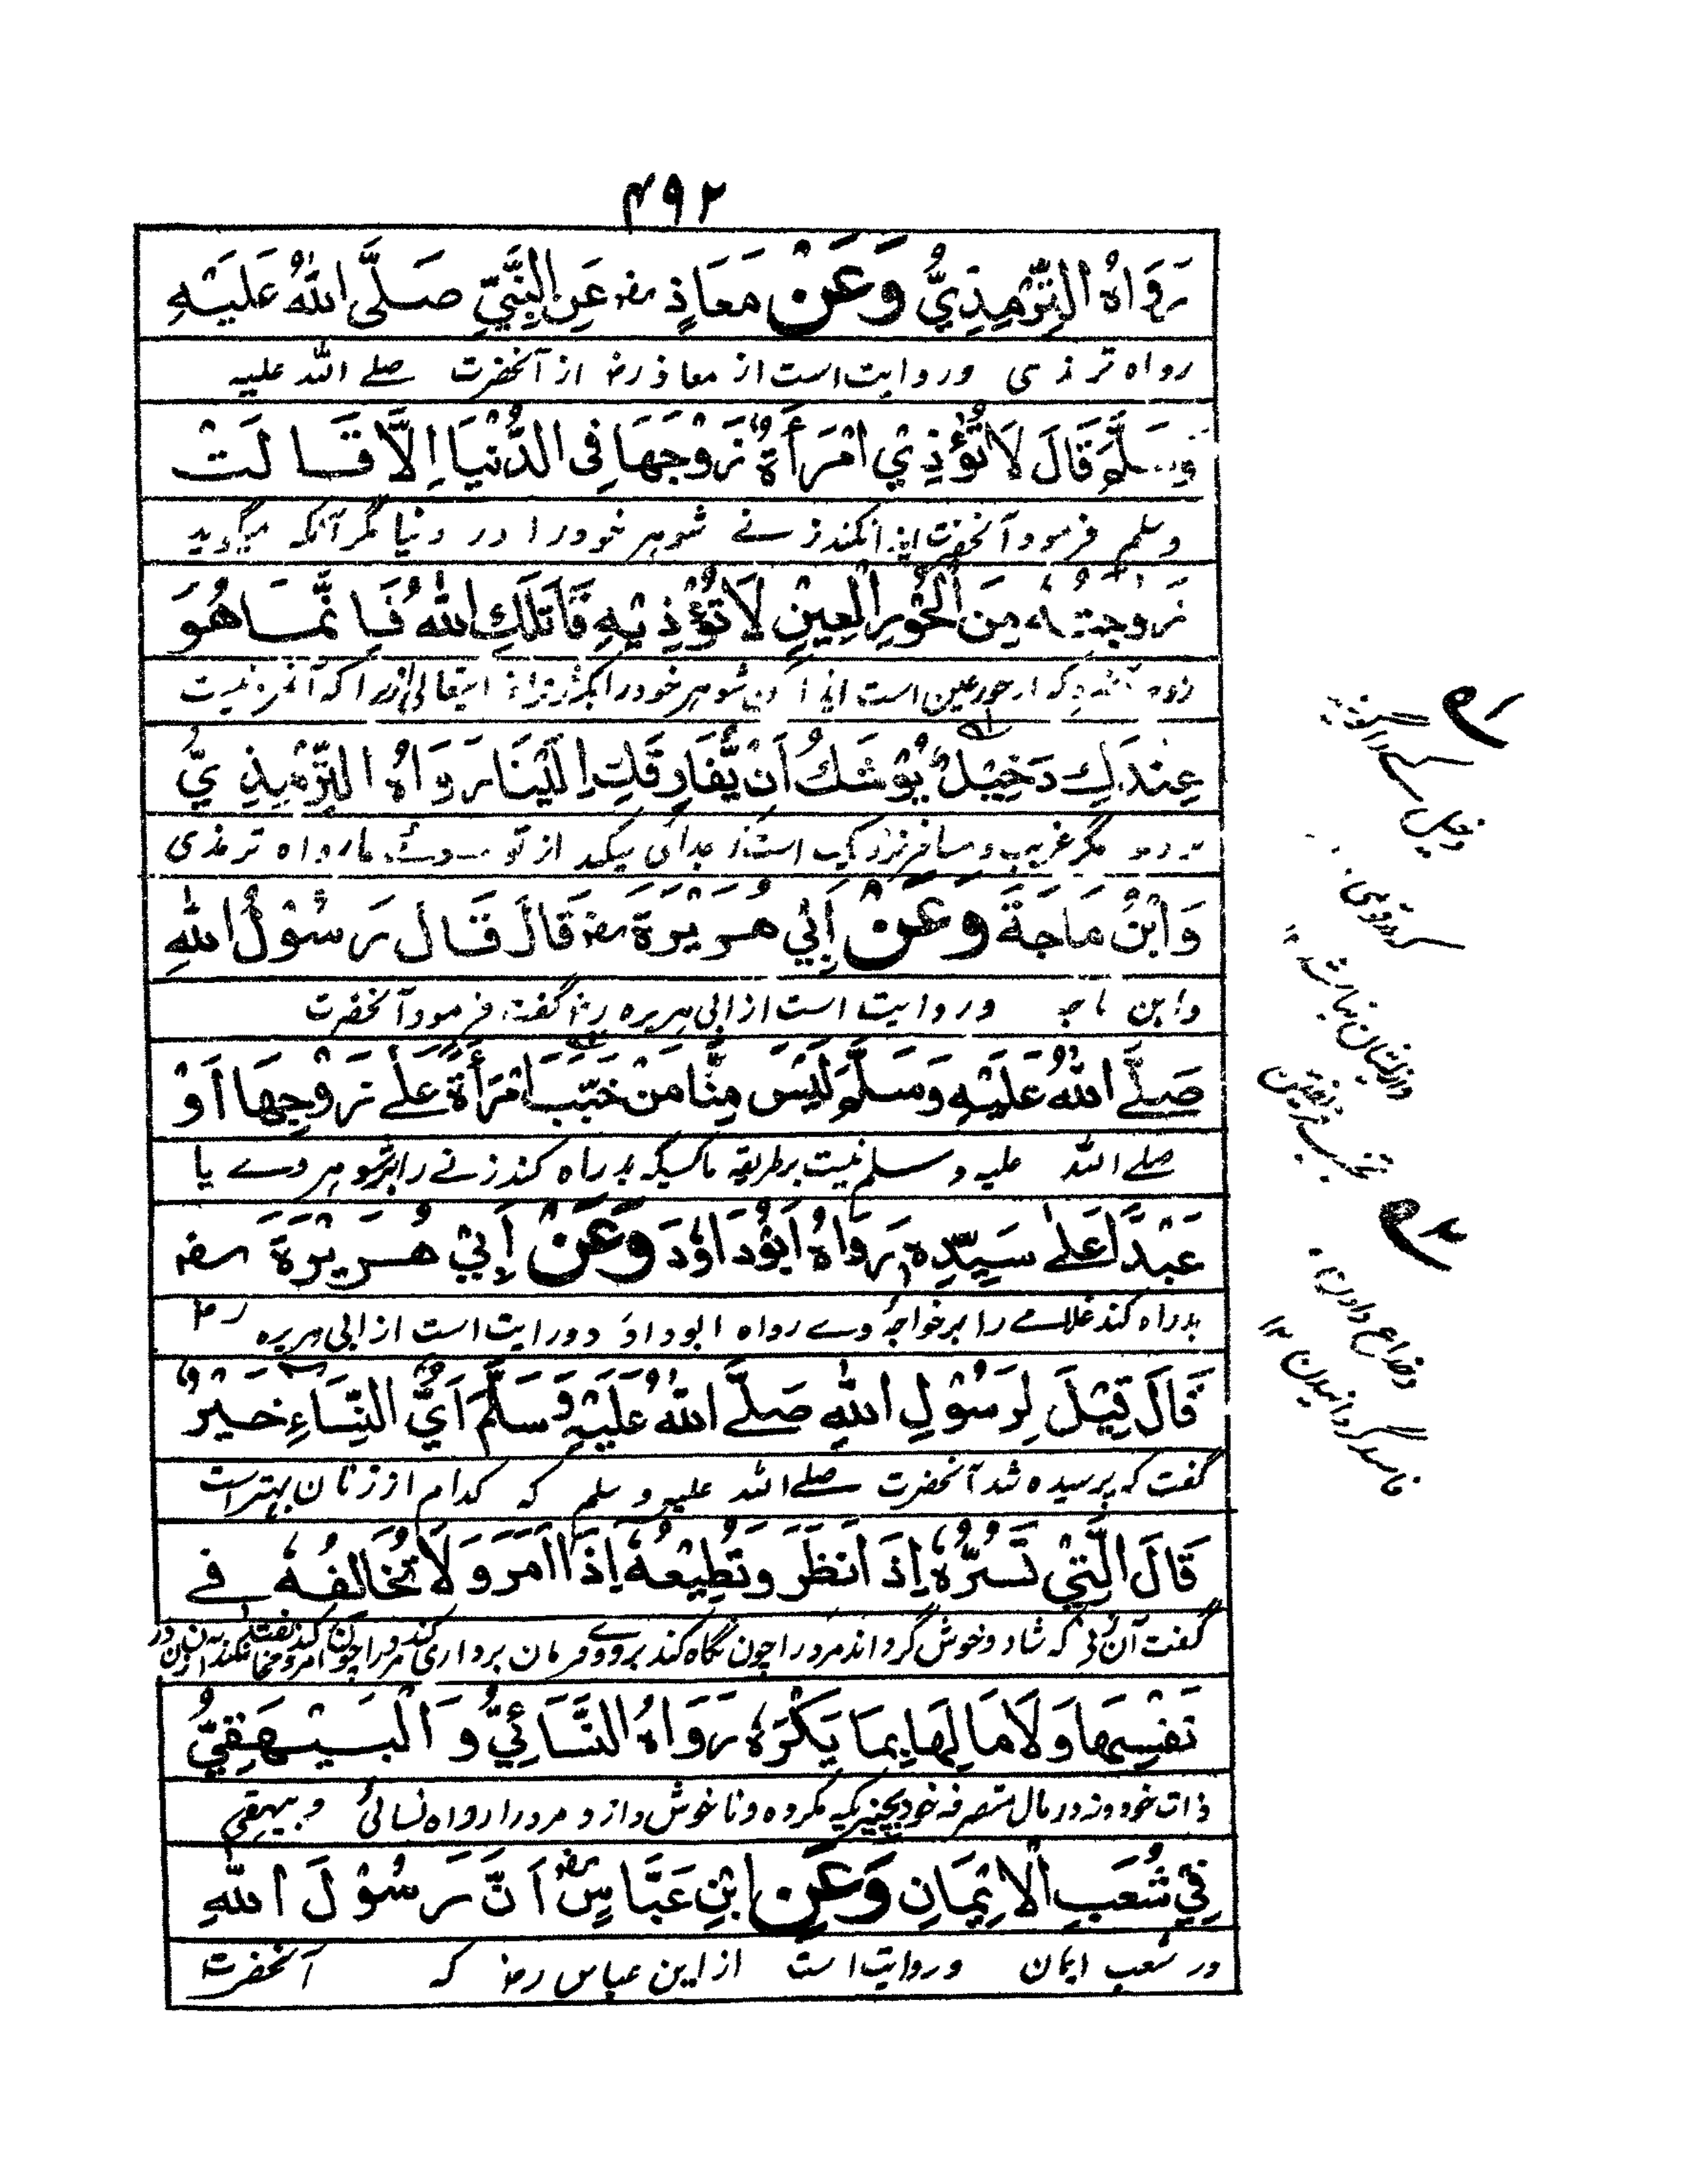 ۴۹۲
رَوَاهُ التِّرْمِذِيُّ وَعَنْ مَعَاذٍ رضہ عَنِ النَّبِيِّ صَلَّى اللهُ عَلَيْهِ
رواه ترمذی وروایت است از معاذ رضہ از آنحضرت صلے اللہ علیہ
وَسَلَّمَ قَالَ لَا تُؤْذِيْ امْرَأَةٌ زَوْجَهَا فِى الدُّنْيَا اِلَّا قَالَتْ
وسلم فرمود آنحضرت ایذا نکند زنے شوہر خود را در دنیا مگر آنکہ میگوید
زَوْجَتُهٗ مِنَ الْحُوْرِ الْعِيْنِ لَا تُؤْذِيْهِ قَاتَلَكِ اللهُ فَاِنَّمَا هُوَ
کہ از حور عین است شوہر خود را زیرا کہ نیست
عِنْدَكِ دَخِيْلٌ يُوْشَكُ اَنْ يُّفَارِقَكِ اِلَيْنَا رَوَاهُ التِّرْمِذِيُّ
مگر غریب و مسافر نزدیک است از تو رواہ ترمذی
وَابْنُ مَاجَةَ وَعَنْ اَبِيْ هُرَيْرَةَ رضہ قَالَ قَالَ رَسُوْلُ اللهِ
وابن ماجہ وروایت است از ابی ہریرہ رضہ گفت فرمود آنحضرت
صَلَّے اللهُ عَلَيْهِ وَسَلَّمَ لَيْسَ مِنَّا مَنْ خَبَّبَ امْرَأَةً عَلٰے زَوْجِهَا اَوْ
صلے اللہ علیہ وسلم نیست بر طریقہ ما کسیکہ بدراہ کند زنے را بر شوہر وے یا
عَبْدًا عَلٰے سَيِّدِهٖ رَوَاهُ اَبُوْدَاوٗدَ وَعَنْ اَبِيْ هُرَيْرَةَ رضہ
بدراہ کند غلامے را بر خواجہ وے رواہ ابوداؤد وروایت است از ابی ہریرہ رضہ
قَالَ قِيْلَ لِرَسُوْلِ اللهِ صَلَّے اللهُ عَلَيْهِ وَسَلَّمَ اَيُّ النِّسَاءِ خَيْرٌ
گفت کہ پرسیدہ شد آنحضرت صلے اللہ علیہ وسلم کہ کدام از زنان بہتر است
قَالَ الَّتِيْ تَسُرُّهٗ اِذَا نَظَرَ وَتُطِيْعُهٗ اِذَا اَمَرَ وَلَا تُخَالِفُهٗ فِے
گفت آن زنی کہ شاد و خوش گرداند مرد را چون نگاہ کند بروے و فرمان برداری کند مرد را چون امر کند
نَفْسِهَا وَلَا مَالِهَا بِمَا يَكْرَهُ رَوَاهُ النَّسَائِيُّ وَالْبَيْهَقِيُّ
ذات خود و نہ در مال متصرفہ خود بچیزیکہ مکروہ و ناخوش دارد مرد را رواہ نسائی و بیہقی
فِيْ شُعَبِ الْاِيْمَانِ وَعَنِ ابْنِ عَبَّاسٍ رضہ اَنَّ رَسُوْلَ اللهِ
در شعب ایمان وروایت است از ابن عباس رضہ کہ آنحضرت